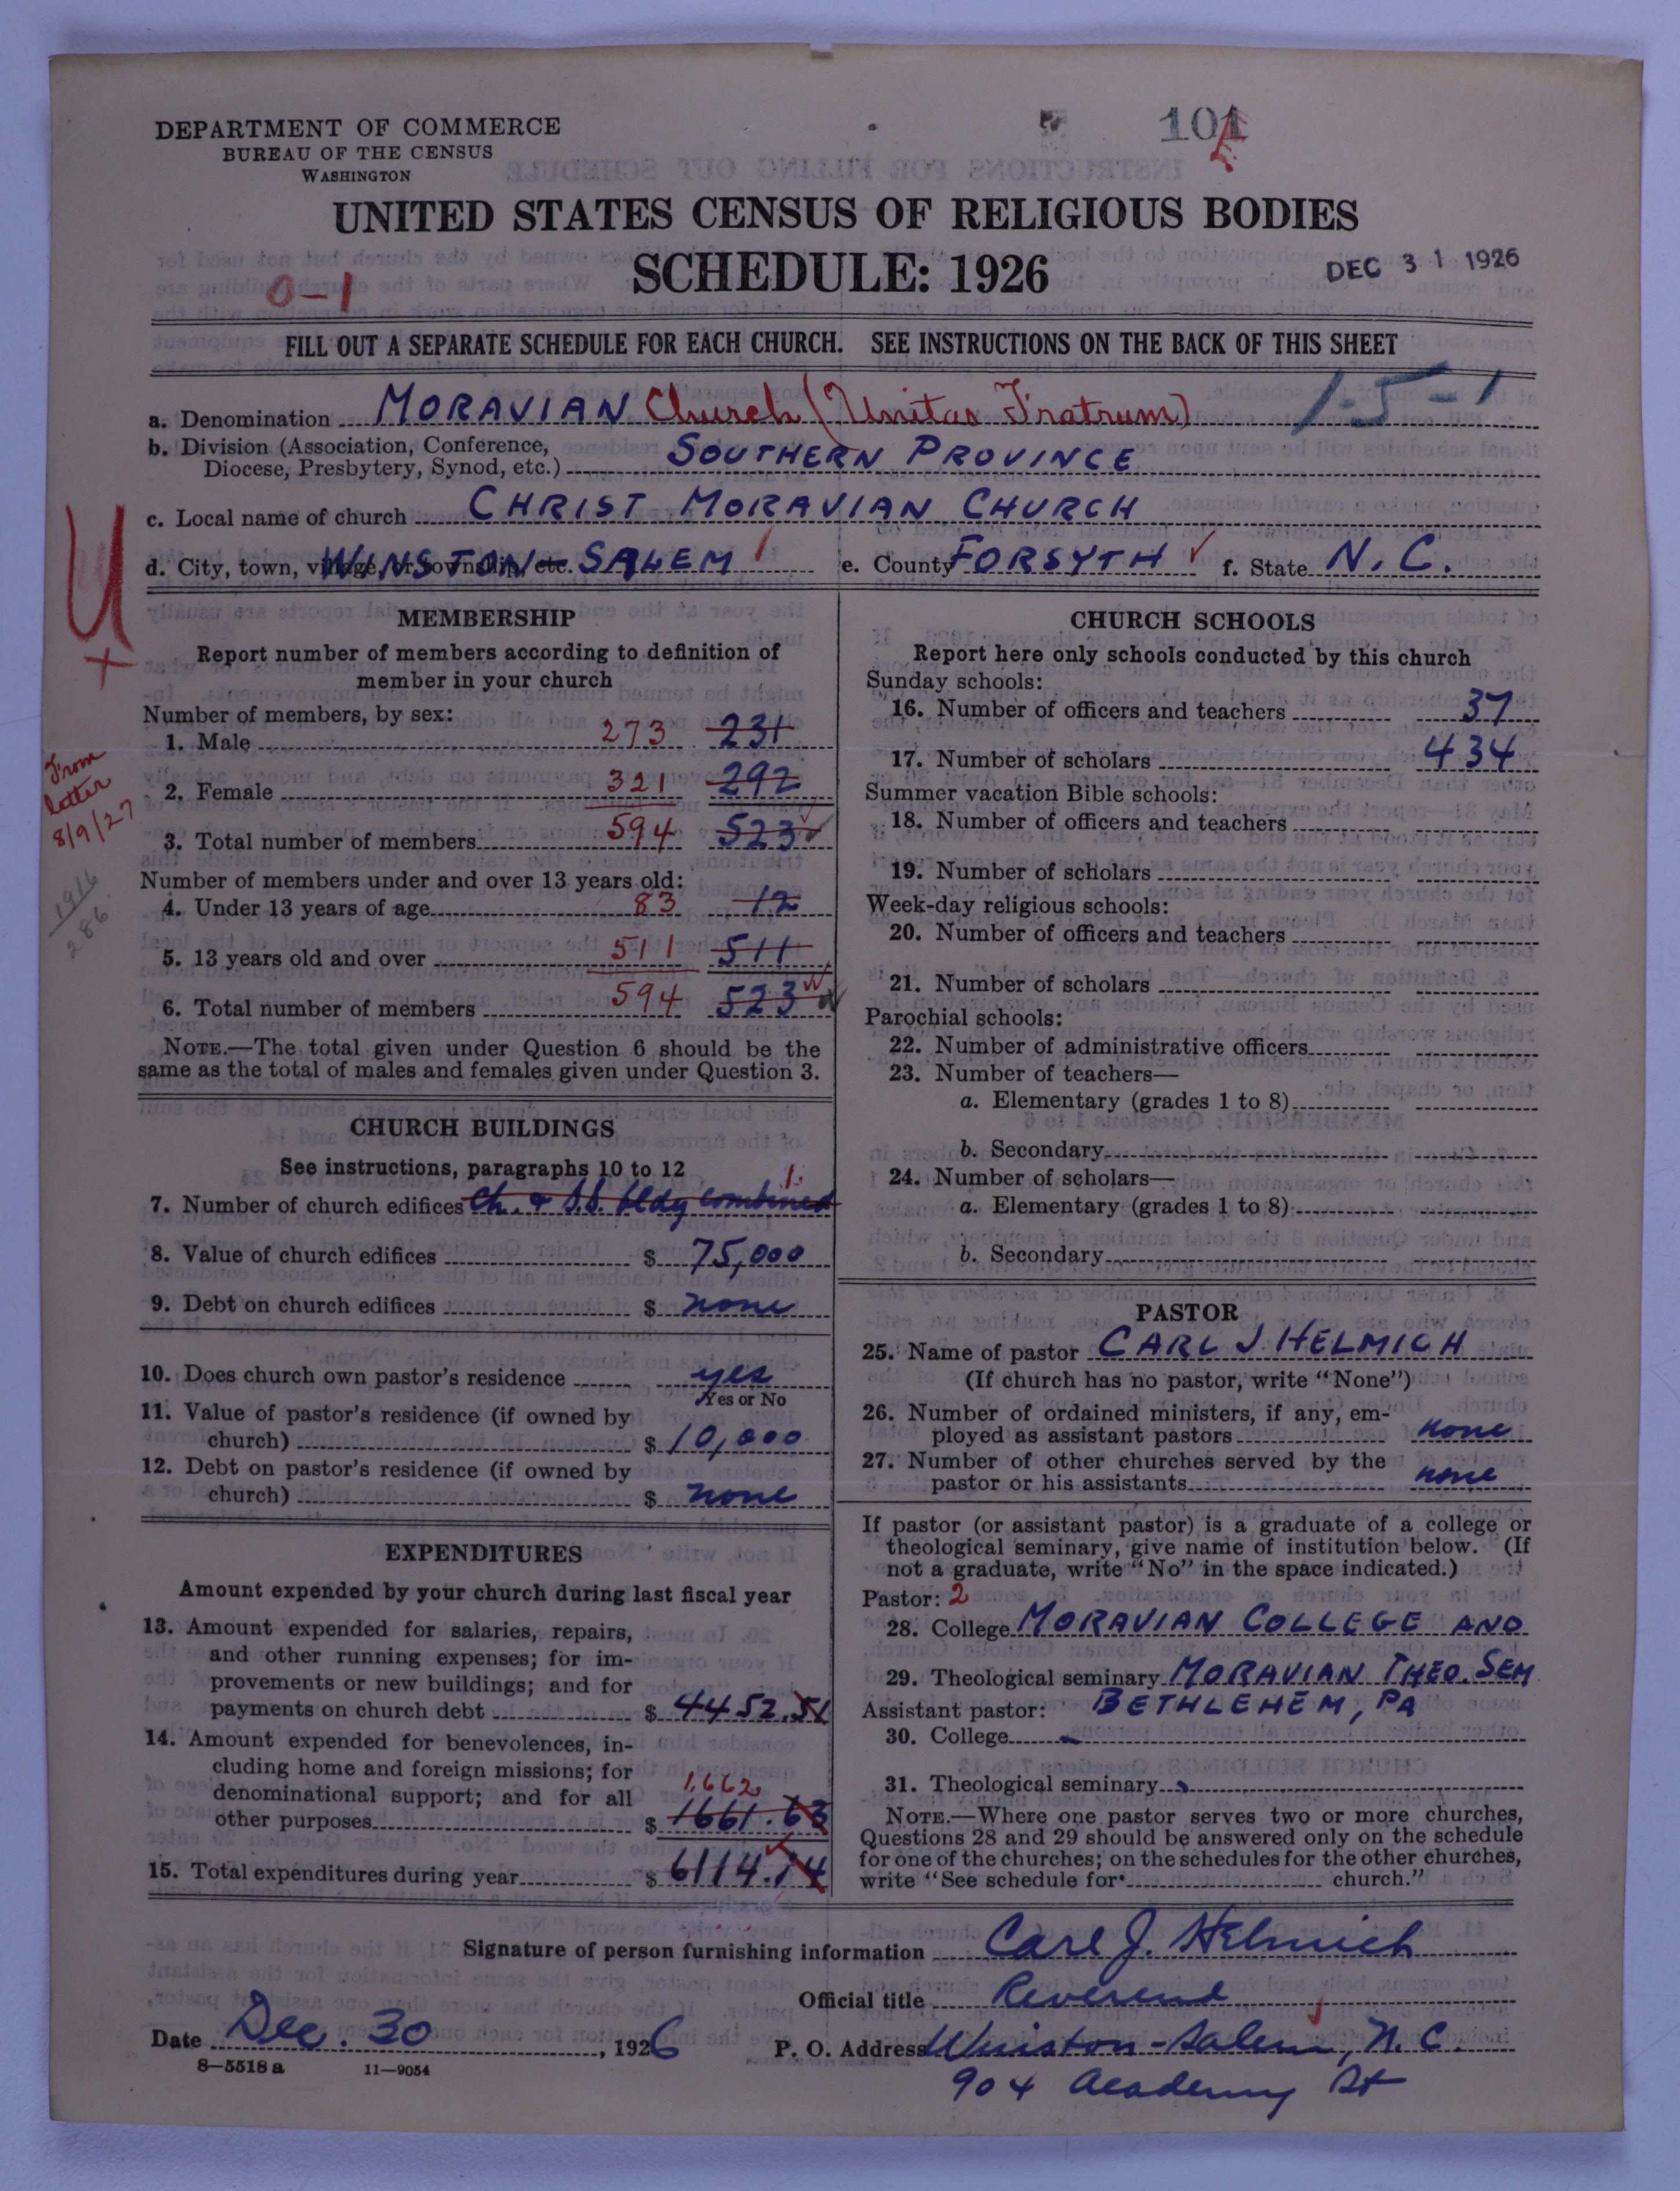 DEPARTMENT OF COMMERCE
BUREAU OF THE CENSUS
WASHINGTON
101
UNITED STATES CENSUS OF RELIGIOUS BODIES
SCHEDULE: 1926
DEC 31 1926
0-1
FILL OUT A SEPARATE SCHEDULE FOR EACH CHURCH. SEE INSTRUCTIONS ON THE BACK OF THIS SHEET
1-5-1
a. Denomination MORAVIAN Church (Unitas Fratrum)
b. Division (Association, Conference,
Diocese, Presbytery, Synod, etc.) SOUTHERN PROVINCE
c. Local name of church CHRIST MORAVIAN CHURCH
d. City, town, village, or township, etc. WINSTON-SALEM e. County FORSYTH f. State N. C.
U
x
MEMBERSHIP
Report number of members according to definition of
member in your church
Number of members, by sex:
1. Male 273 231
2. Female 321 292
3. Total number of members 594 523
From
letter
8/9/27
1916
286
Number of members under and over 13 years old:
4. Under 13 years of age 83 12
5. 13 years old and over 511 511
6. Total number of members 594 523
NOTE.—The total given under Question 6 should be the
same as the total of males and females given under Question 3.
CHURCH BUILDINGS
See instructions, paragraphs 10 to 12
1
7. Number of church edifices Ch. & S.S. bldg combined
8. Value of church edifices $ 75,000
9. Debt on church edifices $ none
10. Does church own pastor's residence yes
Yes or No
11. Value of pastor's residence (if owned by
church) $ 10,000
12. Debt on pastor's residence (if owned by
church) $ none
EXPENDITURES
Amount expended by your church during last fiscal year
13. Amount expended for salaries, repairs,
and other running expenses; for im-
provements or new buildings; and for
payments on church debt $ 4452.51
14. Amount expended for benevolences, in-
cluding home and foreign missions; for
denominational support; and for all 1,662
other purposes $ 1661.63
15. Total expenditures during year $ 6114.14
CHURCH SCHOOLS
Report here only schools conducted by this church
Sunday schools:
16. Number of officers and teachers 37
17. Number of scholars 434
Summer vacation Bible schools:
18. Number of officers and teachers
19. Number of scholars
Week-day religious schools:
20. Number of officers and teachers
21. Number of scholars
Parochial schools:
22. Number of administrative officers
23. Number of teachers—
a. Elementary (grades 1 to 8)
b. Secondary
24. Number of scholars—
a. Elementary (grades 1 to 8)
b. Secondary
PASTOR
25. Name of pastor CARL J. HELMICH
(If church has no pastor, write "None")
26. Number of ordained ministers, if any, em-
ployed as assistant pastors none
27. Number of other churches served by the
pastor or his assistants none
If pastor (or assistant pastor) is a graduate of a college or
theological seminary, give name of institution below. (If
not a graduate, write "No" in the space indicated.)
Pastor: 2
28. College MORAVIAN COLLEGE AND
29. Theological seminary MORAVIAN THEO. SEM
Assistant pastor: BETHLEHEM, PA
30. College
31. Theological seminary
NOTE.—Where one pastor serves two or more churches,
Questions 28 and 29 should be answered only on the schedule
for one of the churches; on the schedules for the other churches,
write "See schedule for church."
Signature of person furnishing information Carl J. Helmich
Official title Reverend
Date Dec. 30, 1926 P. O. Address Winston-Salem, N. C.
8-5518 a 11-9054
904 Academy St